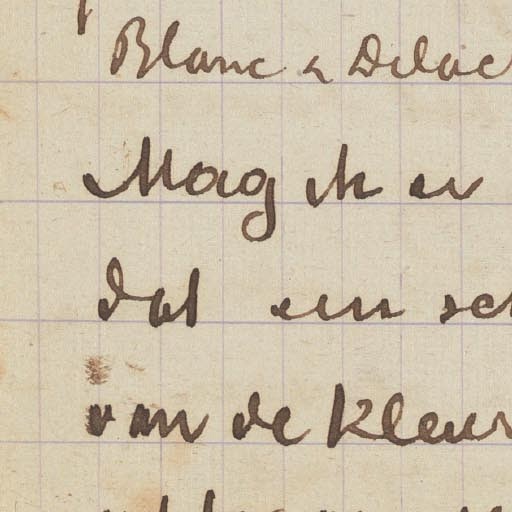 Blanc & Delac
Mag ik er
dat een sch
van de kleur